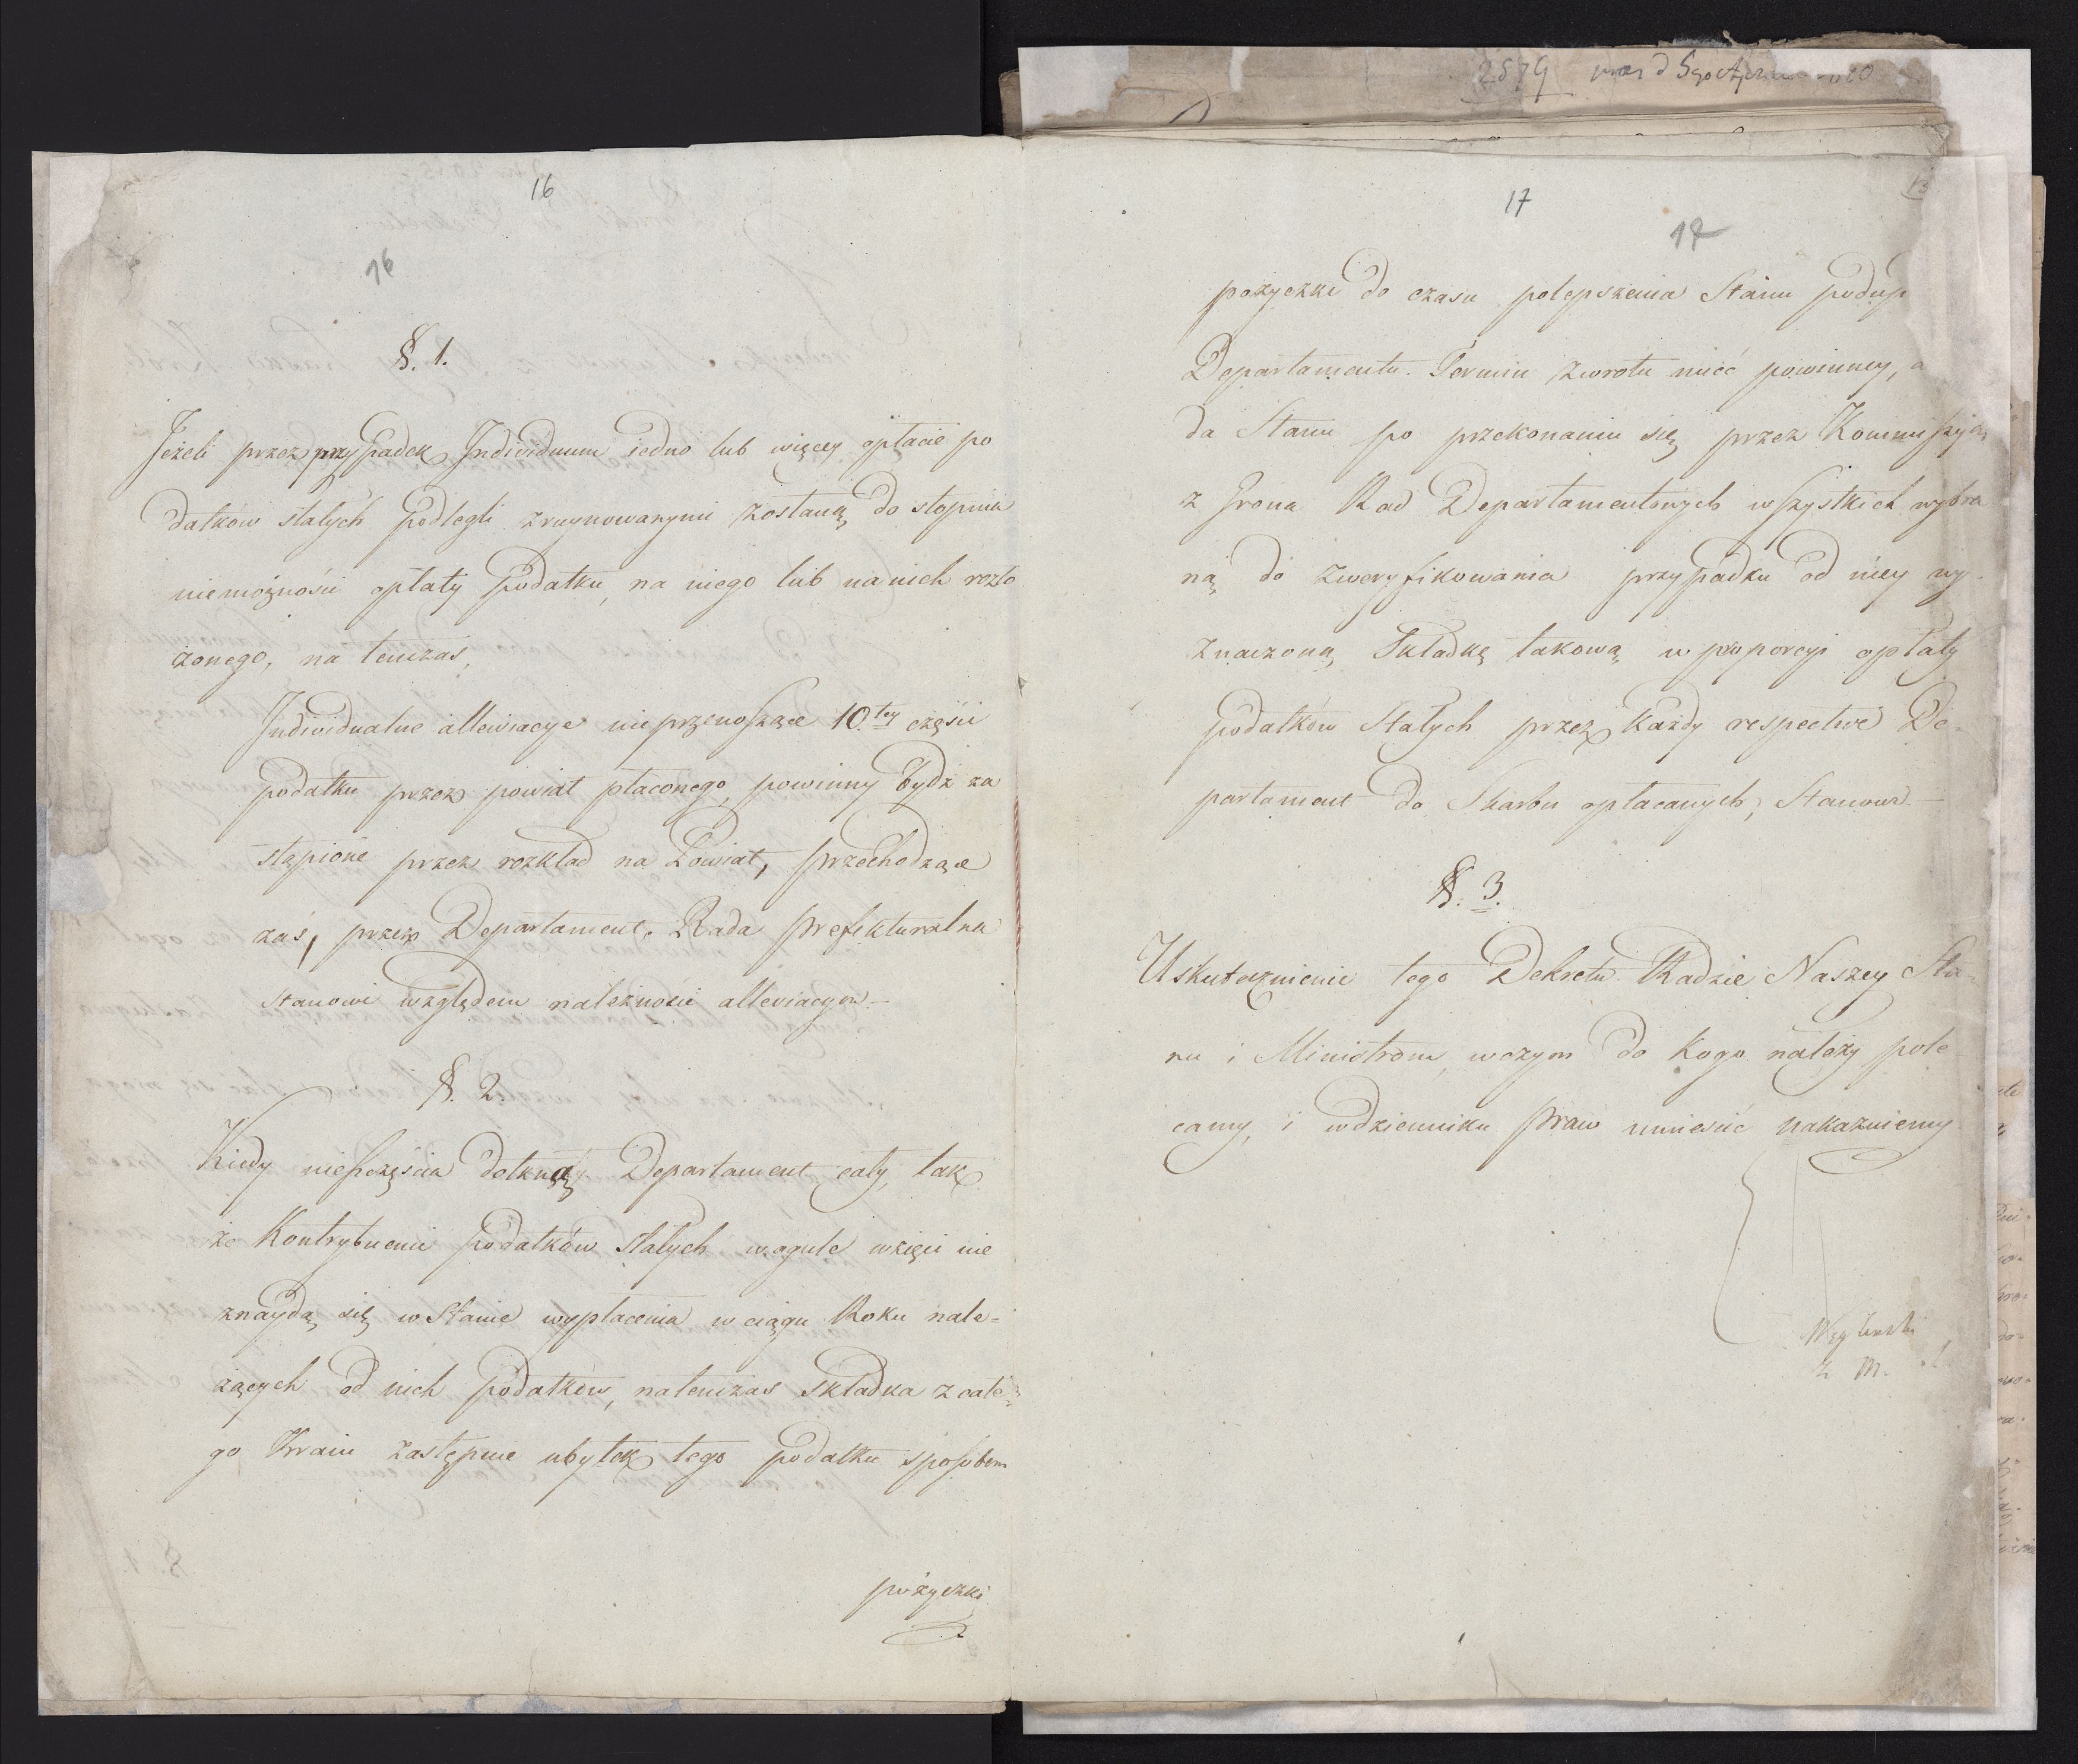 16
16
§. 1.
Jeżeli przez przypadek Individuum iedno lub więcey opłacie po
datkow stałych podlegli zruynowanymi zostaną, do stopnia
niemożności opłaty podatku, na niego lub na nich rozło
żonego, na tenczas,
Individualne allewiacye nieprzenoszące 10.tey części
podatku przez powiat płaconego, powinny bydź za
stąpione przez rozkład na Powiat, przechodzące
zaś, przez Departament. Rada prefekturalna
stanowi względem należności alleviacyow.—
§. 2.
Kiedy nieszczęścia dotkną Departament cały, tak
że Kontrybuenci podatków stałych wogule wzięci nie
znaydą się w Stanie wypłacenia w ciągu Roku nale=
żących od nich podatków, natenczas składka z całe=
go Kraiu zastępuie ubytek tego podatku sposobem
pożyczki
2879
17
17
13
pożyczki do czasu polepszenia Stanu podup
Departamentu. Termin zwrotu mieć powinney, a
da Stanu po przekonaniu się przez Kommissyią
z Grona Rad Departamentowych wszystkich wybra
ną do zweryfikowania przypadku od niey wy-
znaczoną, Składkę takową w proporcyi opłaty
podatków Stałych przez każdy respective De-
partament do Skarbu opłacanych, Stanowi.—
§. 3.
Uskutecznienie tego Dekretu Radzie Naszey Sta-
nu i Ministrom, wczym do kogo należy pole
camy, i w dzienniku praw umieścić nakazuiemy
Węgleński
z M.